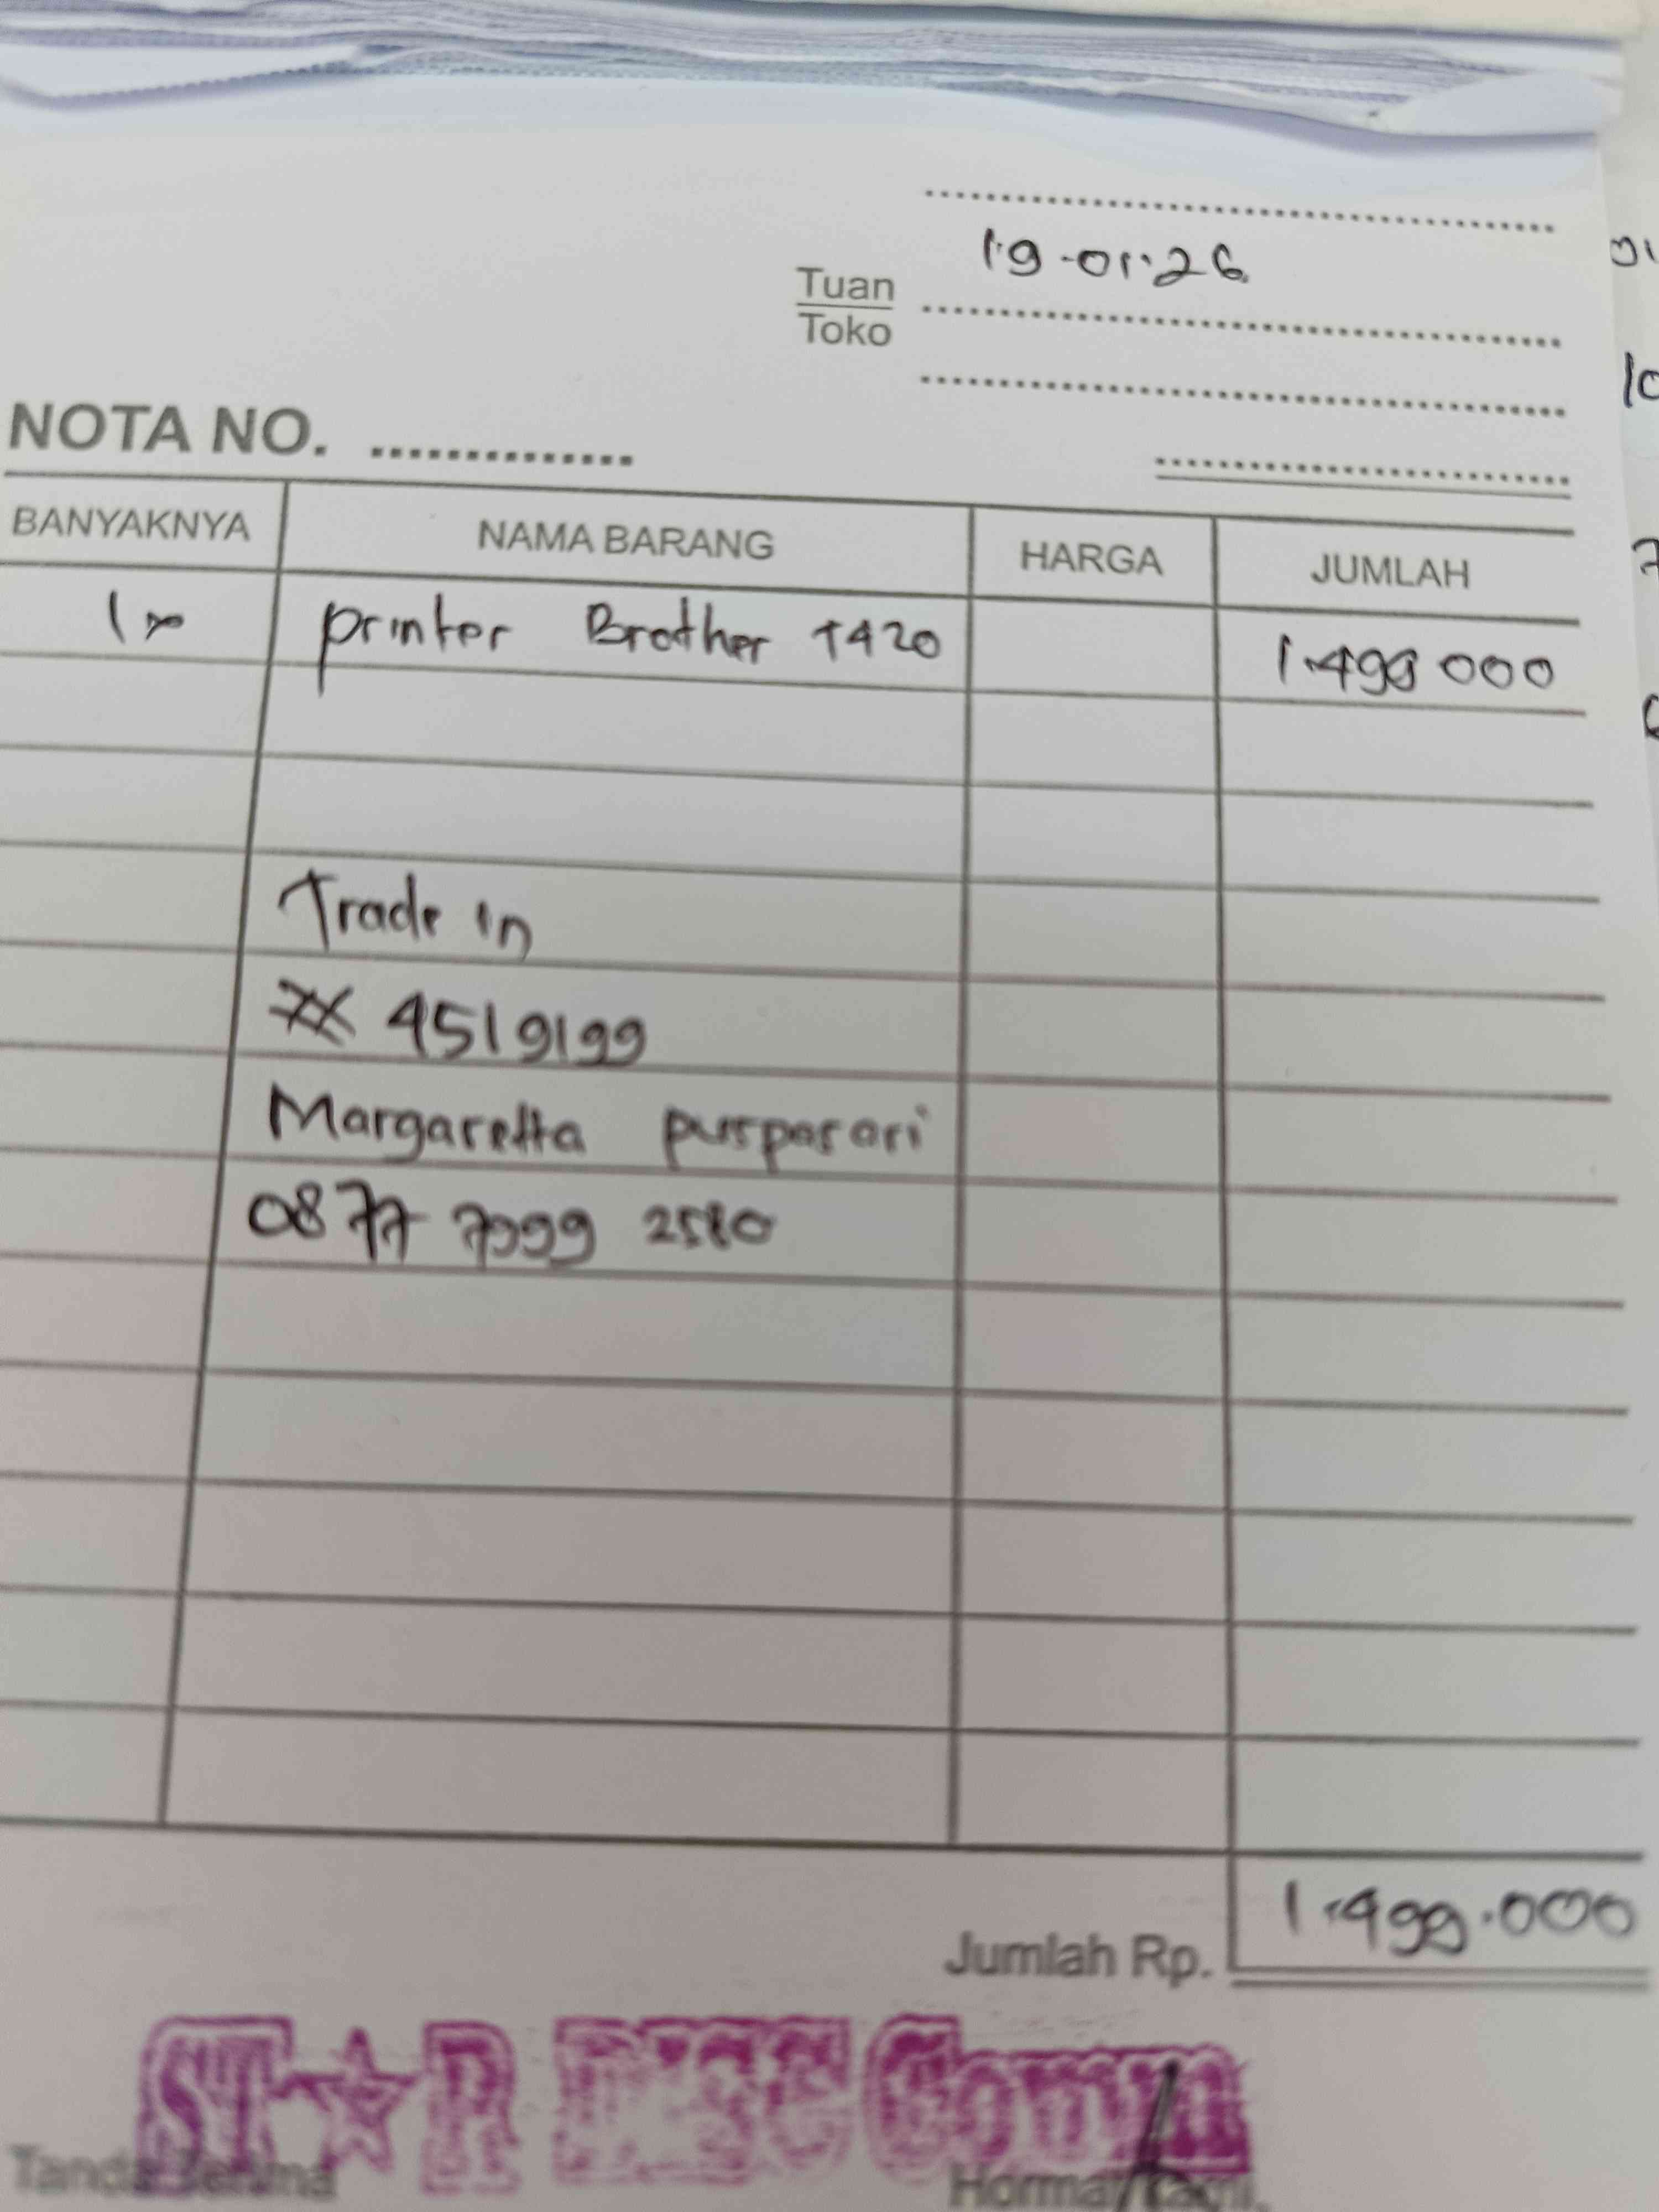 19-01-26
Tuan
Toko
NOTA NO.
BANYAKNYA NAMA BARANG HARGA JUMLAH
1x printer Brother T420 1.499 000
Trade in
4519199
Margaretta
0877 7999 2580
Jumlah Rp. 1.499.000
ST★R DISC Comm
Tanda Terima
Hormat Kami,